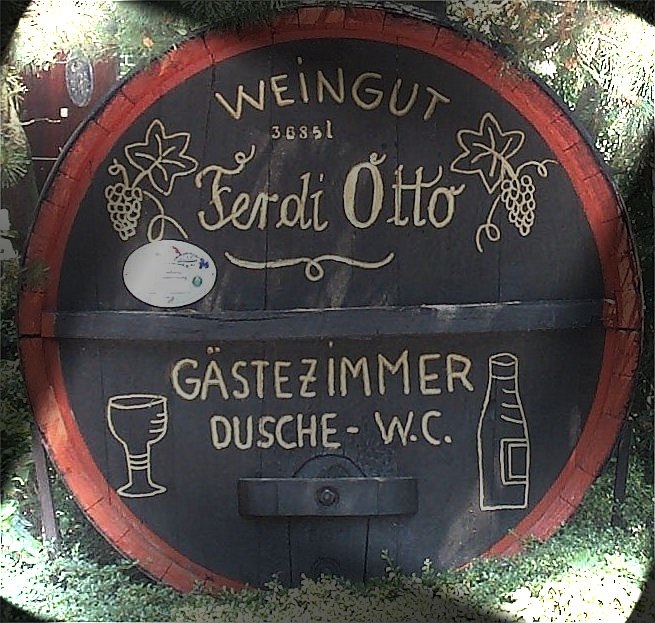 WEINGUT
3685l
Ferdi Otto
GÄSTEZIMMER
DUSCHE - W.C.